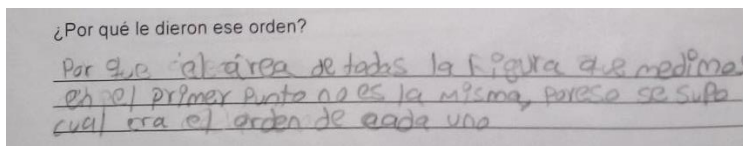 ¿Por qué le dieron ese orden?
Por que el área de todas la Figura que medimos
en el primer punto no es la misma, por eso se supo
cual era el orden de cada uno